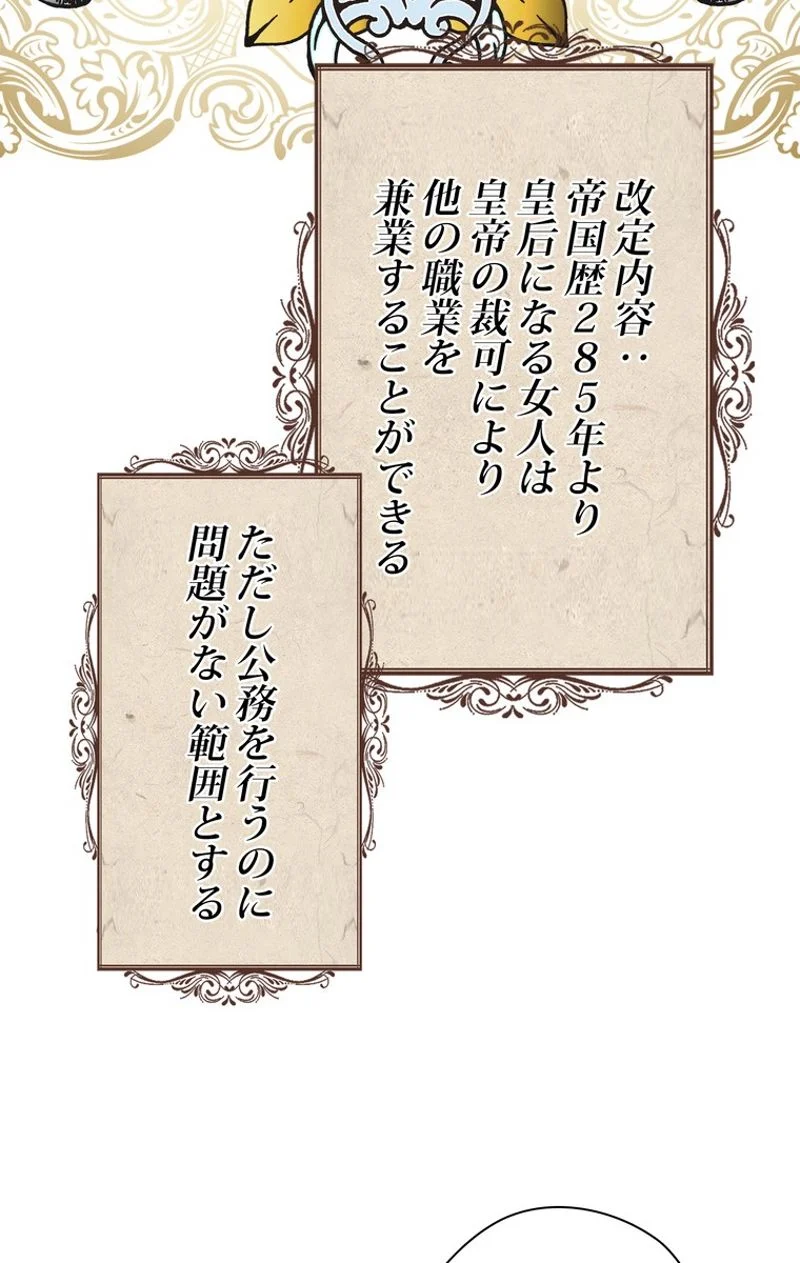 改定内容：
帝国歴285年より
皇后になる女人は
皇帝の裁可により
他の職業を
兼業することができる
ただし公務を行うのに
問題がない範囲とする